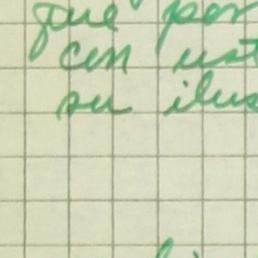 que por
con ust
su ilus